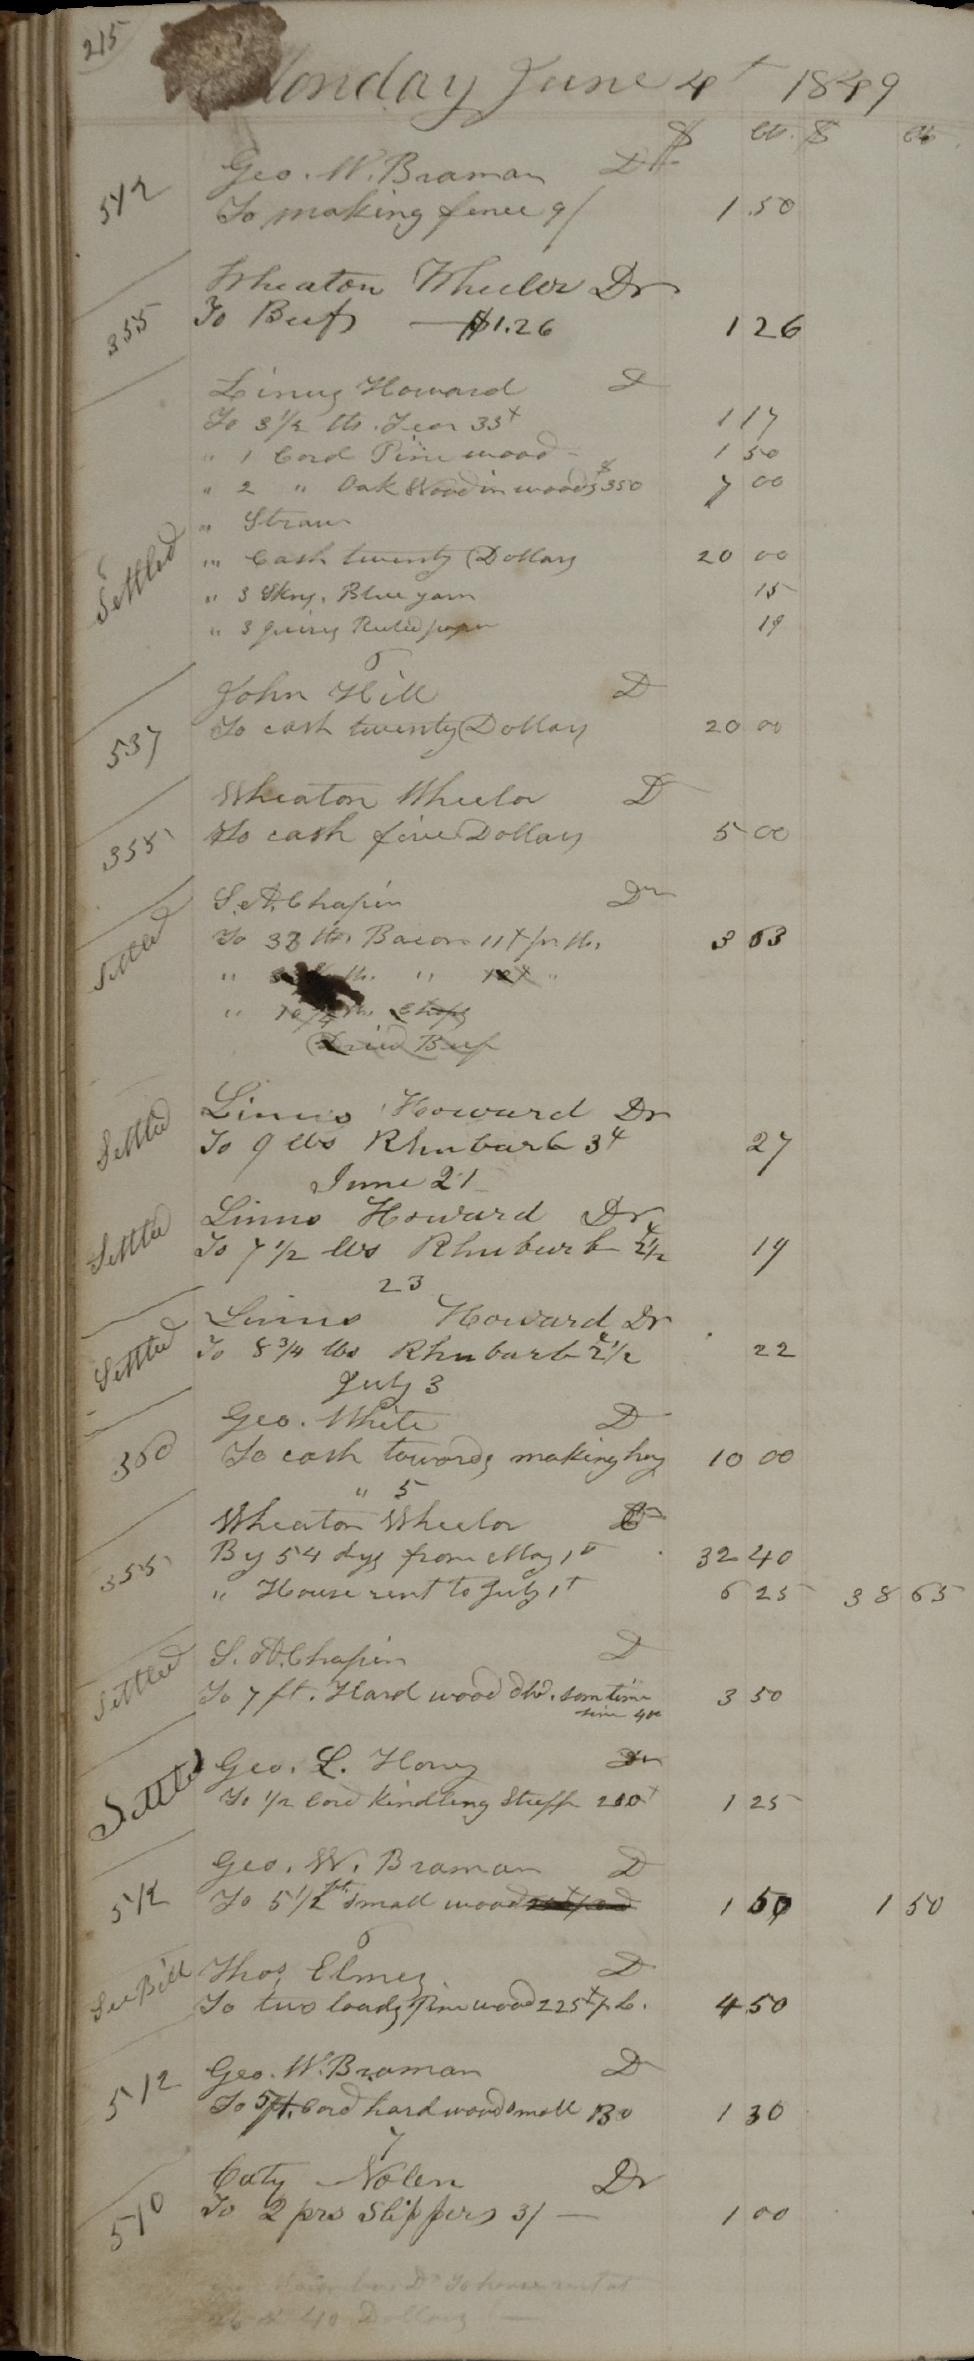 215
Monday June 4t 1849
$ cts. $ cts
512 Geo. W. Braman Dr
To making fence 9/ 1.50
355 Wheaton Wheelor Dr
To Beef — $1.26 1 26
Linus Howard D
To 3 1/2 lbs. 33 1 17
" 1 Cord Pine wood 1 50
" 2 " Oak Wood in woods $350 7 00
" Straw
Settled " Cash twenty Dollars 20 00
" 3 Skns. Blue yarn 15
" 3 quires Ruled paper 19
6
537 John Hill D
To cash twenty Dollars 20 00
355 Wheaton Wheelor D
To cash five Dollars 5 00
Settled S. A. Chapin Dr
To 33 lbs. Bacon 11 pr lb. 3 63
" lbs. " 12 "
" 10 1/4 lbs. Chips
Dried Beef
Settled Linus Howard Dr
To 9 lbs Rhubarb 3 27
June 21
Settled Linus Howard Dr
To 7 1/2 lbs Rhubarb 2 1/2 19
23
Settled Linus Howard Dr
To 8 3/4 lbs Rhubarb 2 1/2 22
July 3
360 Geo. White D
To cash towards making hay 10 00
" 5
355 Wheaton Wheelor
By 54 dys from May 1st 32 40
" House rent to July 1t 6 25 38 65
Settled S. A. Chapin D
To 7 ft. Hard wood somtime 3 50
since
Settled Geo. L. Dr
To 1/2 Cord Kindling Stuff 250 1 25
512 Geo. W. Braman D
To 5 1/2 ft small wood 1 50 1 50
6
See Bill Thos. Elmes D
To two loads Pine wood 225 p. l. 4 50
512 Geo. W. Braman D
To 5 ft. Cord hard wood small 130 1 30
7
510 Caty Nolen Dr
To 2 prs Slippers 3/ — 1 00
To house rent at
40 Dollars